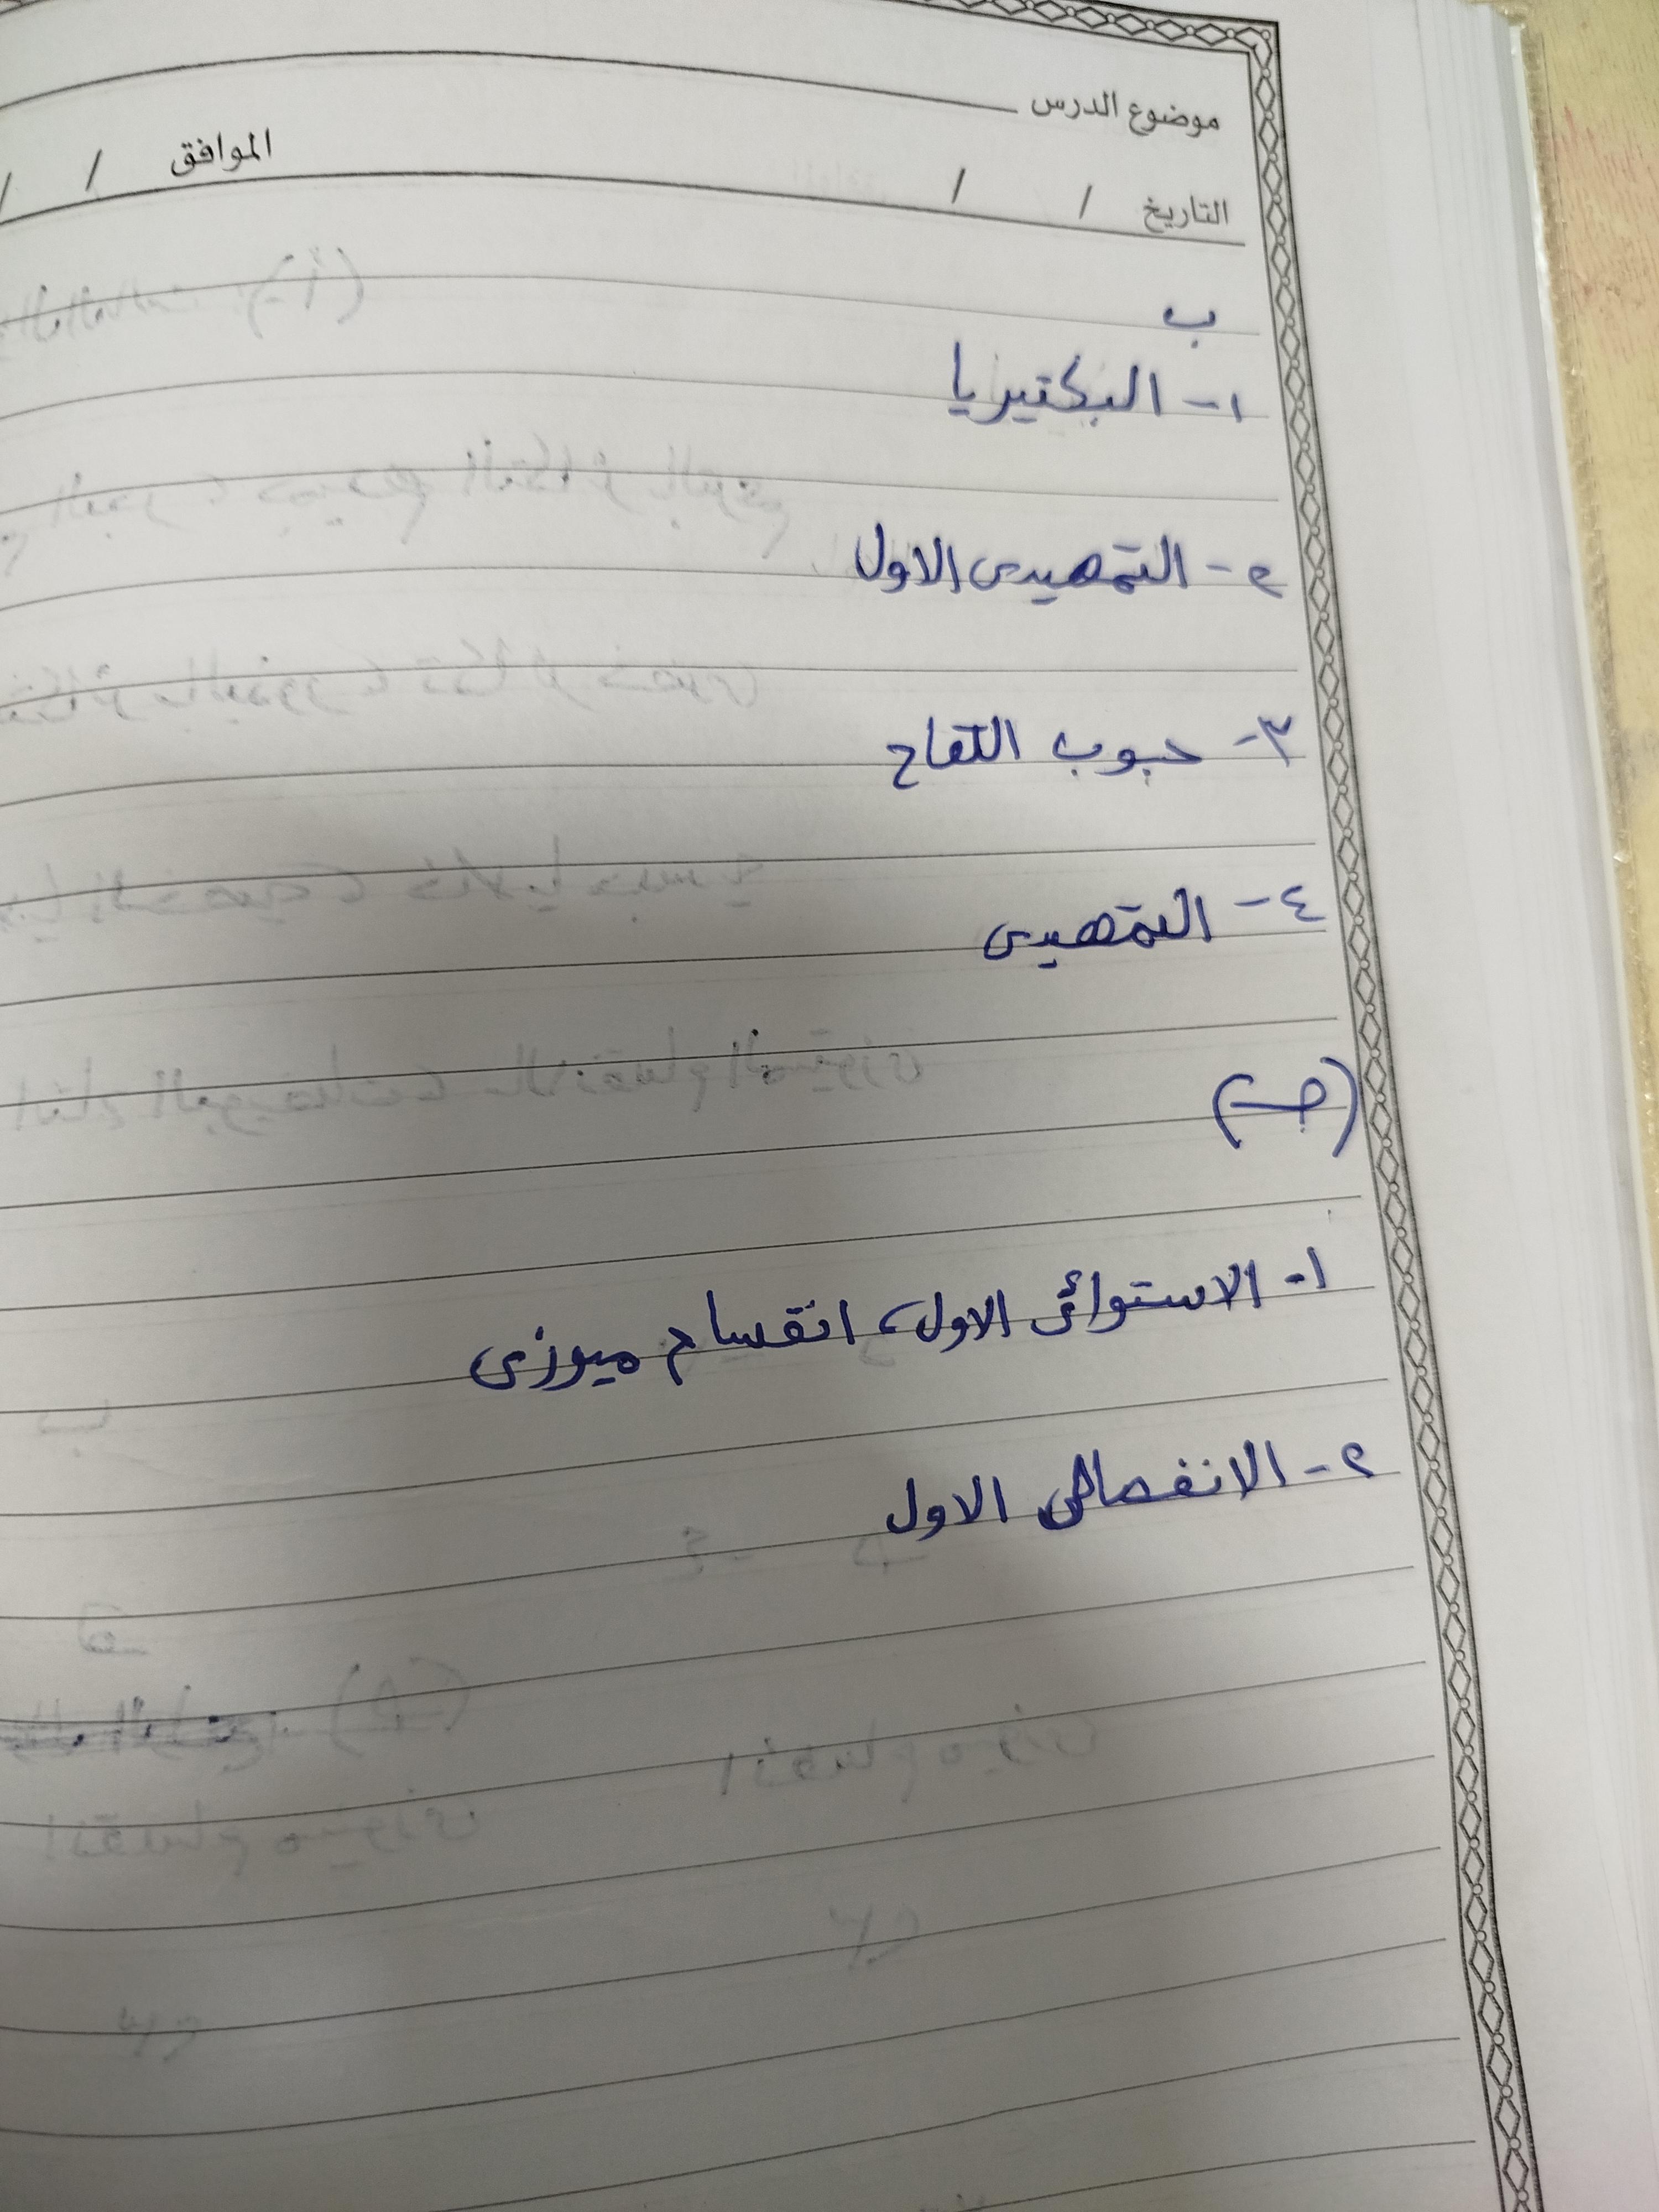 موضوع الدرس
التاريخ / / الموافق / /
ب
١- البكتيريا
٢- التمهيدى الاول
٣- حبوب اللقاح
٤- التمهيدى
(جـ)
١- الاستوائى الاول، انقسام ميوزى
٢- الانفصالى الاول